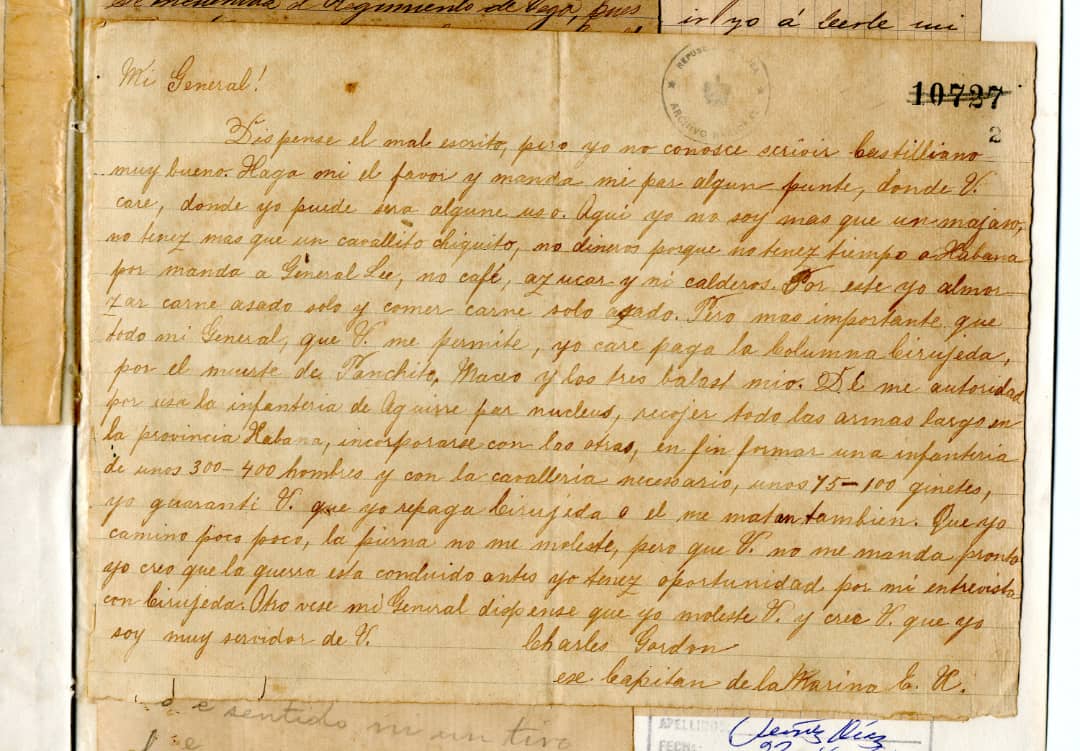 á Regimiento de Vega, pues
ir yo á leerle mi
REPUBLICA DE CUBA
ARCHIVO NACIONAL
10727
2
Mi General!
Dispense el mal escrito, pero yo no conosce scrivir Castilliano
muy bueno. Haga mi el favor y manda me par algun punte, donde V.
care, donde yo puede sera algune uso. Aqui yo no soy mas que un majaso,
no tenez mas que un cavallito chiquito, no dineros porque no tenez tiempo a Habana
por manda a General Lee, no café, azucar y ni calderos. Por este yo almor-
zar carne asado solo y comer carne solo asado. Pero mas importante que
todo mi General, que V. me permite, yo care paga la Columna Cirujeda,
por el muerte de Panchito, Maceo y los tres balast mio. Dé me autoridad
por usa la infanteria de Aguirre par nucleus, recojer todo las armas largo en
la provincia Habana, incorporarse con las otras, en fin formar una infanteria
de unos 300-400 hombres y con la cavalleria necessario, unos 75-100 ginetes,
yo guaranti V. que yo repaga Cirujeda o el me matan tambien. Que yo
camino poco poco, la pierna no me moleste, pero que V. no me manda pronto
yo creo que la guerra esta conduido antes yo tenez oportunidad por mi entrevista
con Cirujeda. Otro vese mi General dispense que yo moleste V. y cree V. que yo
soy muy servidor de V.
Charles Gordon
exe Capitan de la Marina E. U.
sentido ni un tiro
APELLIDOS
FECHA: